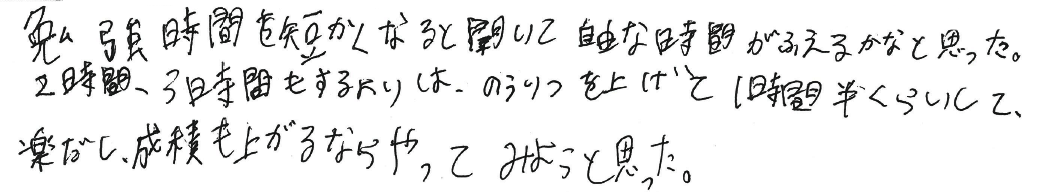 勉強時間を短かくなると聞いて自由な時間がふえるかなと思った。
2時間、3時間もするよりは、のうりつを上げて1時間半くらいして、
楽だし、成積も上がるならやってみようと思った。